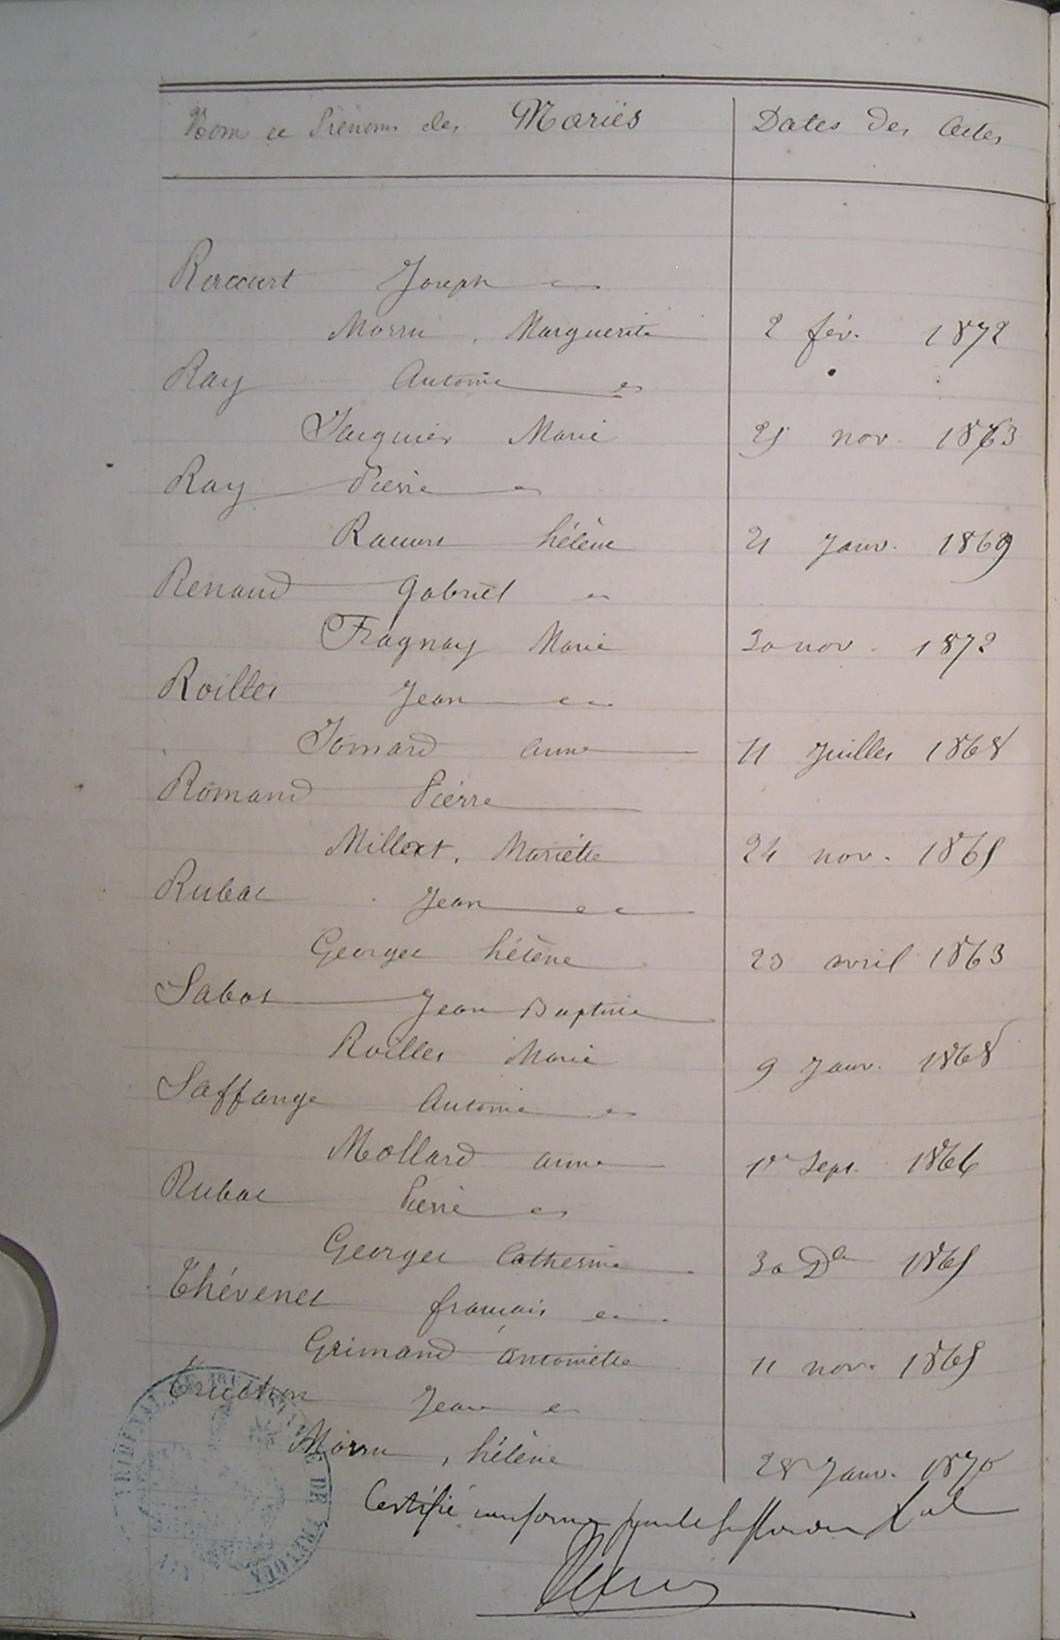 Nom et Prénoms des Mariés Dates des Actes
Raccurt Joseph et
Morru, Marguerite 2 fév. 1872
Ray Antoine et
Jacquier Marie 25 nov. 1863
Ray Pierre et
Raccurt hélène 21 Janv. 1869
Renaud Gabriel et
Fragnay Marie 30 nov. 1872
Roilles Jean et
Jomard anne 11 Juillet 1868
Romand Pierre
Millext, Mariette 24 nov. 1865
Rubat Jean et
Georges hélène 23 avril 1863
Sabot Jean Baptiste
Roilles Marie 9 Janv. 1868
Saffange Antoine et
Mollard anne 1er Sept. 1866
Rubat Pierre et
Georges Catherine 30 Dre 1865
Thévenet français et
Grimand Antoinette 11 nov. 1865
Truchon Jean et
Morru, hélène 28 Janv. 1870
Certifié conforme
DE TREVOUX